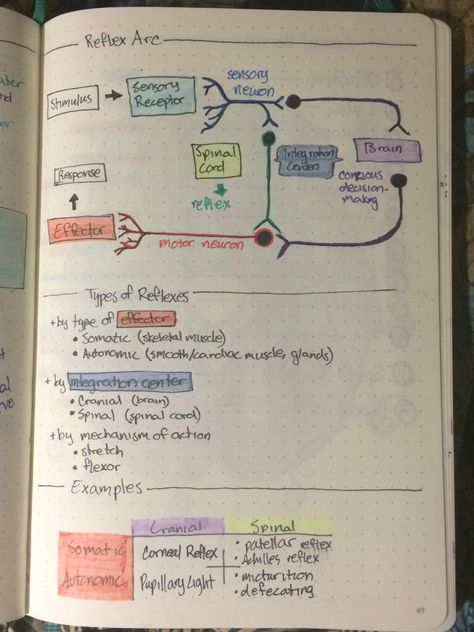 Reflex Arc
Stimulus
Sensory
Receptor
sensory
neuron
Spinal
Cord
reflex
Integration
Centers
Brain
concious
decision-
making
Response
Effector
motor neuron
Types of Reflexes
+ by type of effector
• Somatic (skeletal muscle)
• Autonomic (smooth/cardiac muscle, glands)
+ by integration center
• Cranial (brain)
• Spinal (spinal cord)
+ by mechanism of action
• stretch
• flexor
Examples
Cranial Spinal
Somatic Corneal Reflex
• patellar reflex
• Achilles reflex
Autonomic Pupillary Light
• micturition
• defecating
49